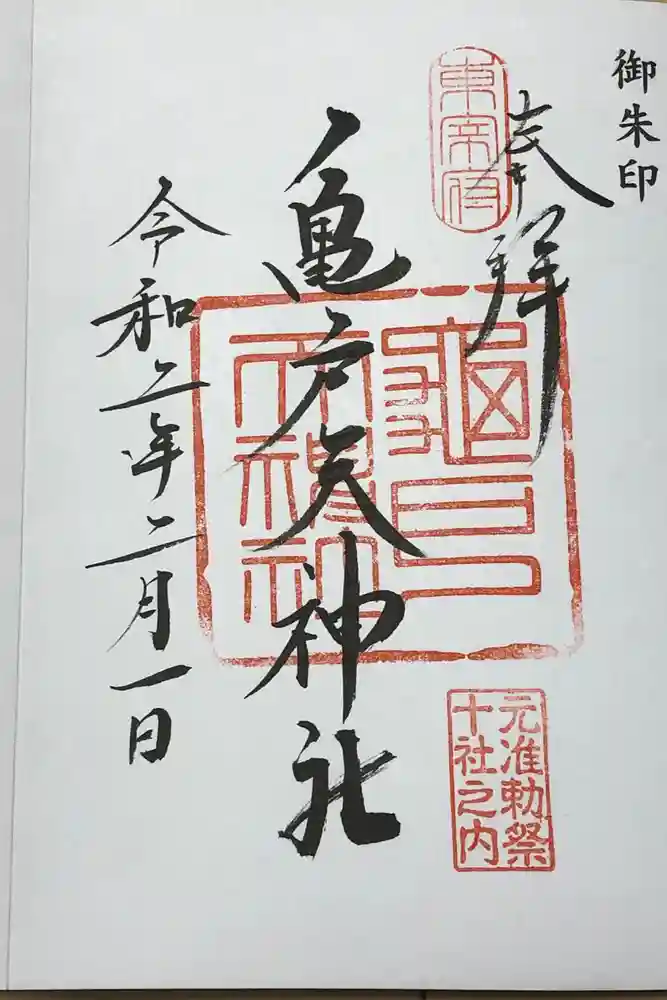 御朱印
奉拝
東宰府
亀戸天神社
亀戸
天神社
元准勅祭
十社之内
令和三年二月一日